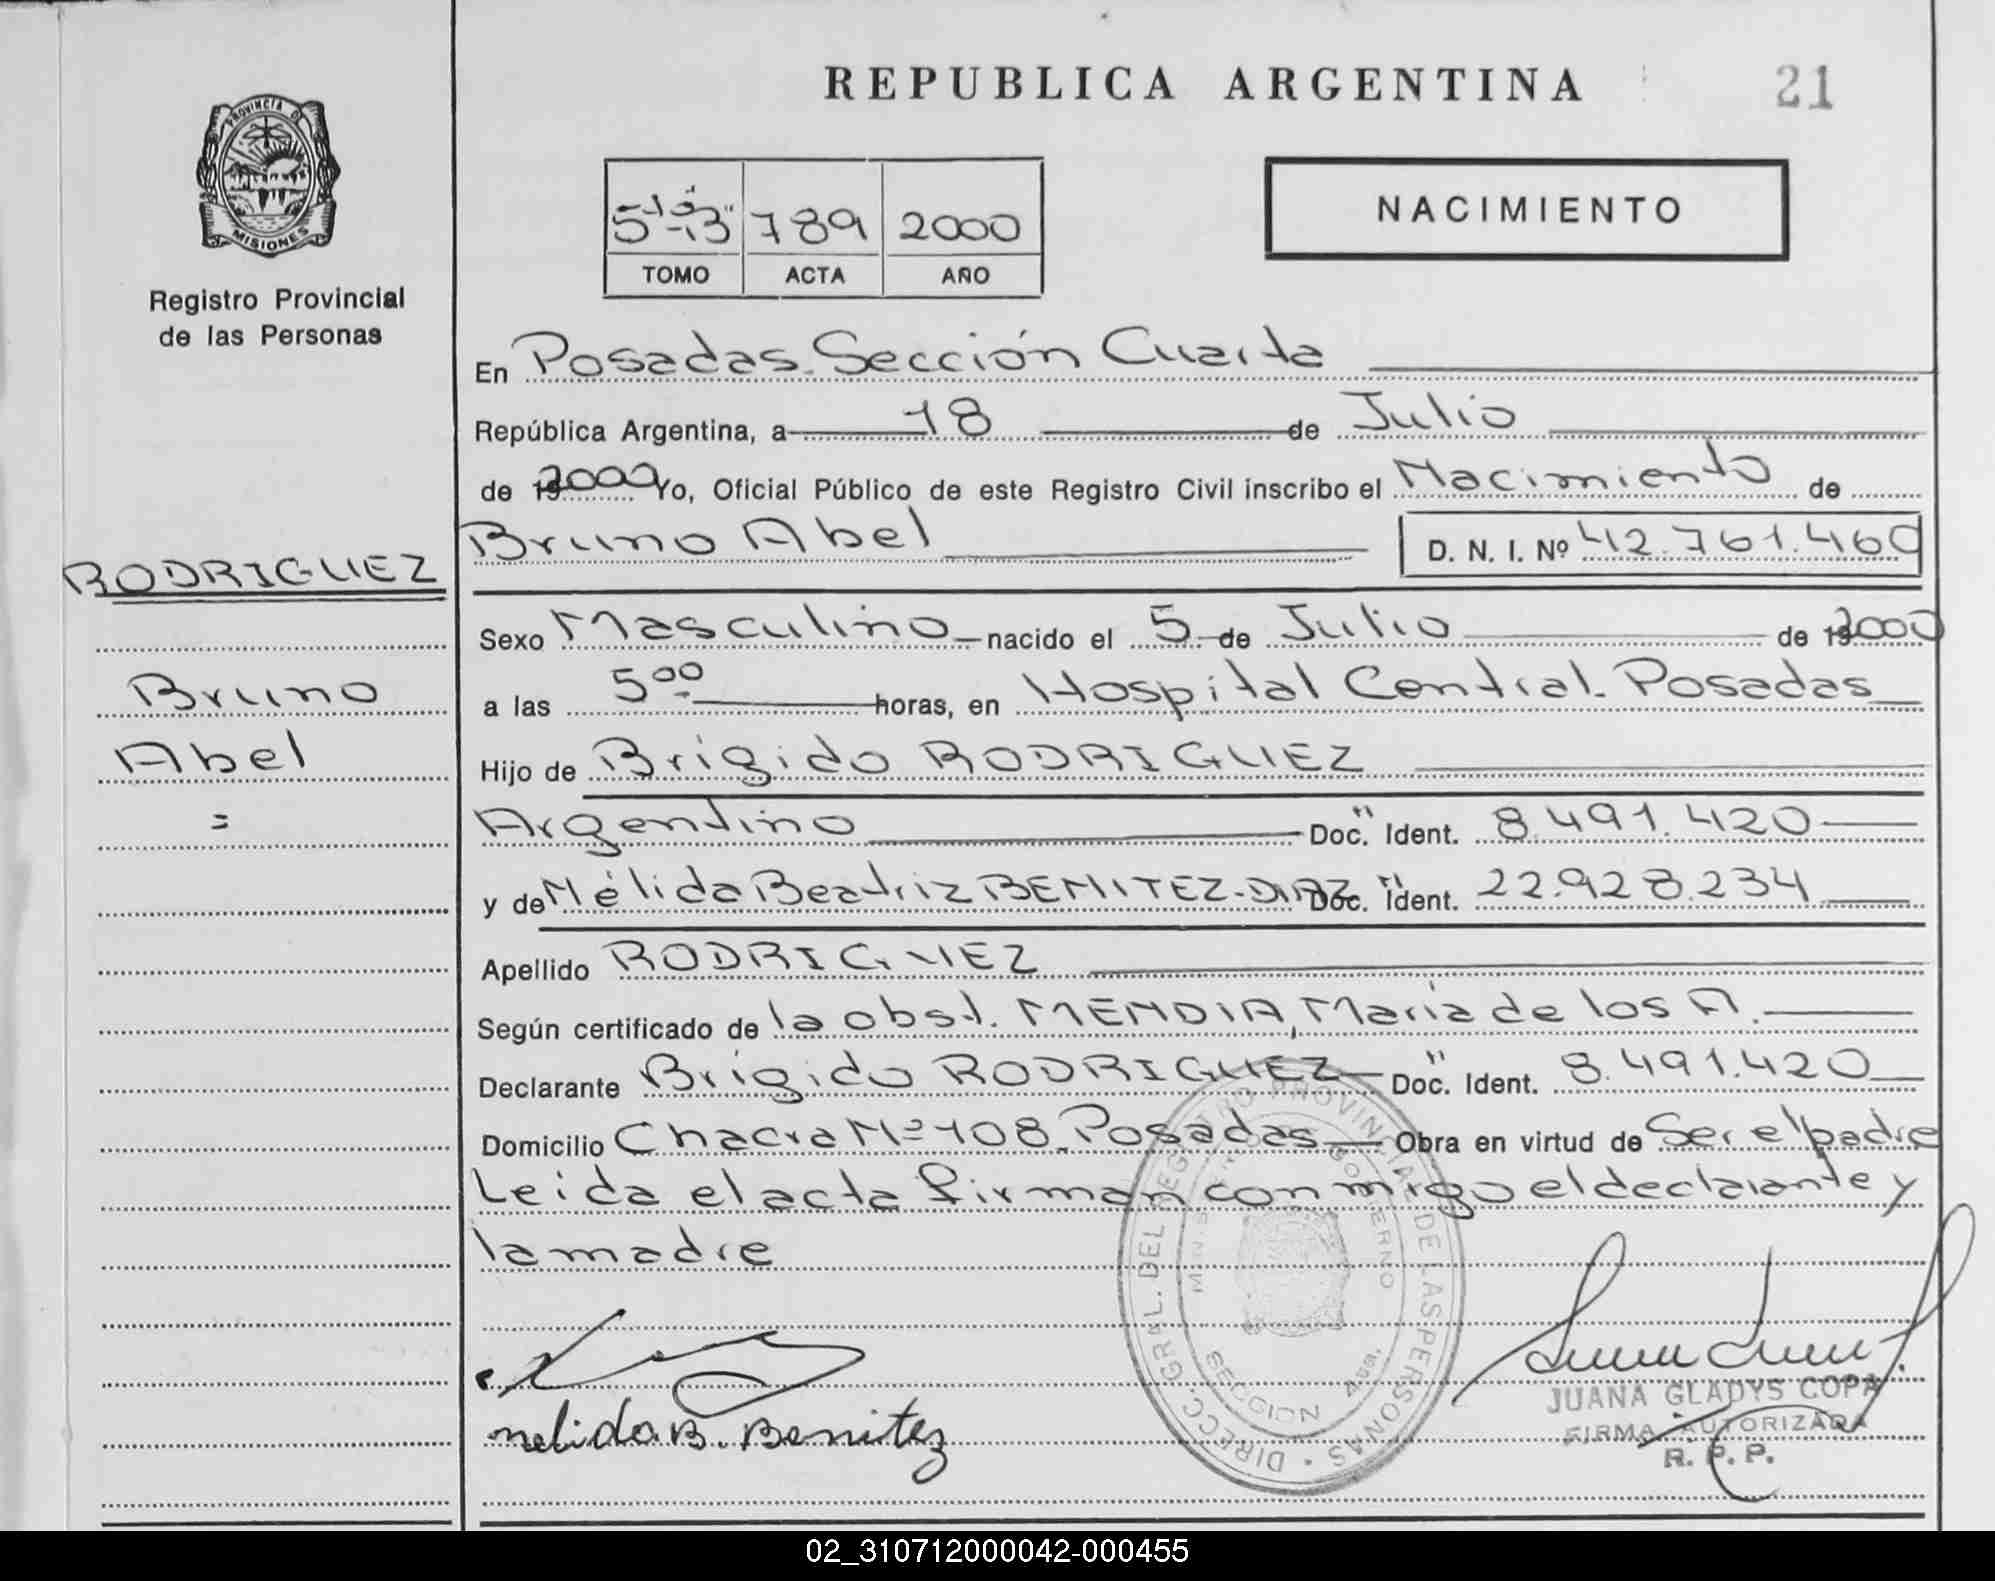 REPUBLICA ARGENTINA
21
PROVINCIA DE
MISIONES
Registro Provincial
de las Personas
789 2000
TOMO ACTA AÑO
NACIMIENTO
En Posadas. Sección Cuarta
República Argentina, a 18 de Julio
de 2000 Yo, Oficial Público de este Registro Civil inscribo el Nacimiento de
Bruno Abel D. N. I. Nº 42.761.460
RODRIGUEZ
Bruno
Abel
=
Sexo Masculino nacido el 5 de Julio de 2000
a las 5 00 horas, en Hospital Central. Posadas
Hijo de Brígido RODRIGUEZ
Argentino Doc. " Ident. 8.491.420
y de Nélida Beatriz BENITEZ-DIAZ Doc. " Ident. 22.928.234
Apellido RODRIGUEZ
Según certificado de la obst. MENDIA, María de los A.
Declarante Brígido RODRIGUEZ Doc. " Ident. 8.491.420
Domicilio Chacra Nº 108. Posadas Obra en virtud de Ser el padre
Leida el acta firman conmigo el declarante y
la madre
DIRECC. GRAL. DEL REGISTRO PROVINCIAL DE LAS PERSONAS
GOBIERNO
SECCION 4ta.
nelida B. Benitez
JUANA GLADYS COPA
FIRMA AUTORIZADA
R. P. P.
02_310712000042-000455